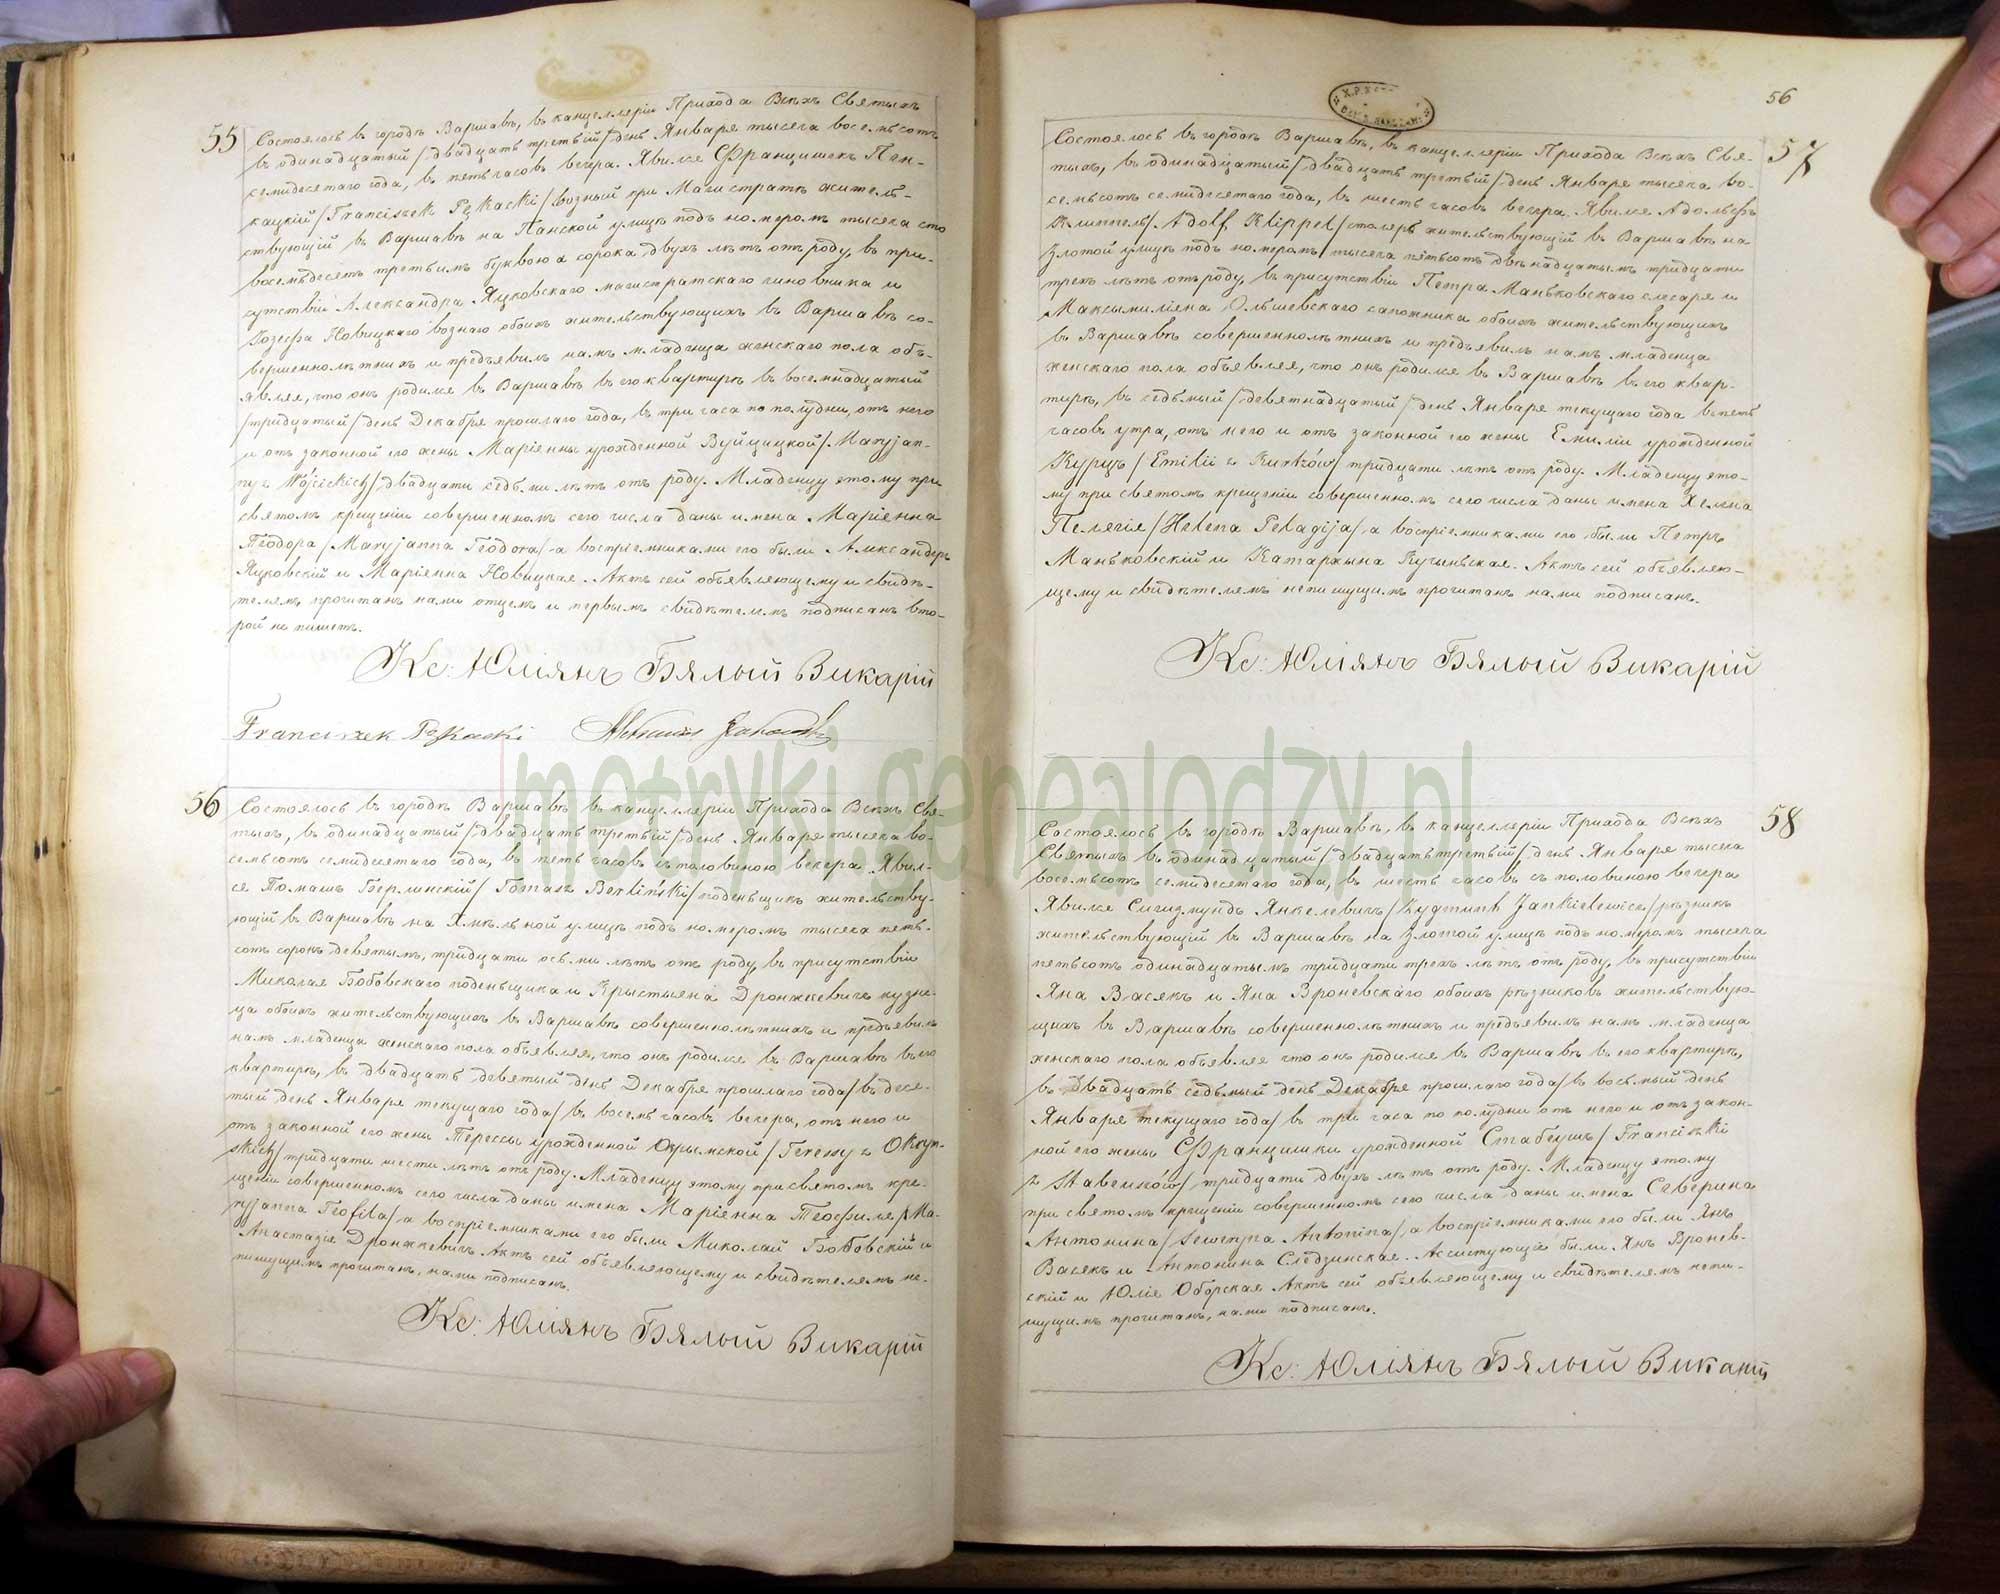 55
Состоялось въ городѣ Варшавѣ, въ канцелляріи Прихода Всѣхъ Святыхъ
въ одинадцатый /двадцать третьій/ день Января тысяча восемьсотъ
семидесятаго года, въ пять часовъ вечера. Явился Францишекъ Пен-
кацкій /Franciszek Pękacki/ возный при Магистратѣ житель-
ствующій въ Варшавѣ на Панской улицѣ подъ номеромъ тысяча сто
восемьдесятъ третьимъ буквою а сорока двухъ лѣтъ отъ роду, въ при-
сутствіи Александра Яцковскаго магистратскаго чиновника и
Іозефа Новицкаго вознаго обоихъ жительствующихъ въ Варшавѣ со-
вершеннолѣтнихъ и предъявилъ намъ младенца женскаго пола объ-
являя, что онъ родился въ Варшавѣ въ его квартирѣ въ восемнадцатый
/тридцатый/ день Декабря прошлаго года, въ три часа по полудни, отъ него
и отъ законной его жены Маріенны урожденной Вуйцицкой /Maryjan-
ny z Wójcickich/ двадцати седьми лѣтъ отъ роду. Младенцу этому при
святомъ крещеніи совершенномъ сего числа даны имена Маріенна
Теодора /Maryjanna Teodora/ а воспріемниками его были Александеръ
Яцковскій и Маріенна Новицкая. Актъ сей объявляющему и свидѣ-
телямъ прочитанъ нами отцемъ и первымъ свидѣтелемъ подписанъ вто-
рой не пишетъ.
Кс: Юліянъ Бялый Викарій
Franciszek Pękacki
56
Состоялось въ городѣ Варшавѣ въ канцелляріи Прихода Всѣхъ Свя-
тыхъ, въ одинадцатый /двадцать третьій/ день Января тысяча во-
семьсотъ семидесятаго года, въ пять часовъ съ половиною вечера. Явил-
ся Томашъ Берлинскій /Tomasz Berliński/ поденьщикъ жительству-
ющій въ Варшавѣ на Хмѣльной улицѣ подъ номеромъ тысяча пять-
сотъ сорокъ девятымъ, тридцати осьми лѣтъ отъ роду, въ присутствіи
Миколая Бобовскаго поденьщика и Крыстыяна Дронжкевичъ кузне-
ца обоихъ жительствующихъ въ Варшавѣ совершеннолѣтнихъ и предъявилъ
намъ младенца женскаго пола объявляя, что онъ родился въ Варшавѣ въ его
квартирѣ, въ двадцать девятый день Декабря прошлаго года /въ деся-
тый день Января текущаго года/ въ восемь часовъ вечера, отъ него и
отъ законной его жены Терессы урожденной Окрымской /Teressy z Okrym-
skich/ тридцати шести лѣтъ отъ роду. Младенцу этому при святомъ кре-
щеніи совершенномъ сего числа даны имена Маріенна Теофиля /Ma-
ryjanna Teofila/ а воспріемниками его были Миколай Бобовскій и
Анастазія Дронжкевичъ Актъ сей объявляющему и свидѣтелямъ не-
пишущимъ прочитанъ, нами подписанъ.
Кс: Юліянъ Бялый Викарій
56
57
Состоялось въ городѣ Варшавѣ, въ канцелляріи Прихода Всѣхъ Свя-
тыхъ, въ одинадцатый /двадцать третьій/ день Января тысяча во-
семьсотъ семидесятаго года, въ шесть часовъ вечера. Явился Адольфъ
Клиппель /Adolf Klippel/ столяръ жительствующій въ Варшавѣ на
Злотой улицѣ подъ номеромъ тысяча пятьсотъ двѣнадцатымъ тридцати
трехъ лѣтъ отъ роду, въ присутствіи Петра Маньковскаго слесаря и
Максымиліяна Ольшевскаго сапожника обоихъ жительствующихъ
въ Варшавѣ совершеннолѣтнихъ и предъявилъ намъ младенца
женскаго пола объявляя, что онъ родился въ Варшавѣ въ его квар-
тирѣ, въ седьмый /девятнадцатый/ день Января текущаго года въ пять
часовъ утра, отъ него и отъ законной его жены Емиліи урожденной
Курцъ /Emilii z Kurtzów/ тридцати лѣтъ отъ роду. Младенцу это-
му при святомъ крещеніи совершенномъ сего числа даны имена Хелена
Пелягія /Helena Pelagija/ а воспріемниками его были Петръ
Маньковскій и Катаржына Кучыньская. Актъ сей объявляю-
щему и свидѣтелямъ непишущимъ прочитанъ нами подписанъ.
Кс: Юліянъ Бялый Викарій
58
Состоялось въ городѣ Варшавѣ, въ канцелляріи Прихода Всѣхъ
Святыхъ въ одинадцатый /двадцать третьій/ день Января тысяча
восемьсотъ семидесятаго года, въ шесть часовъ съ половиною вечера
Явился Сигизмундъ Янкелевичъ /Zygmunt Jankielewicz/ рѣзникъ
жительствующій въ Варшавѣ на Злотой улицѣ подъ номеромъ тысяча
пятьсотъ одинадцатымъ тридцати трехъ лѣтъ отъ роду, въ присутствіи
Яна Васякъ и Яна Вроневскаго обоихъ рѣзниковъ жительствую-
щихъ въ Варшавѣ совершеннолѣтнихъ и предъявилъ намъ младенца
женскаго пола объявляя что онъ родился въ Варшавѣ въ его квартирѣ,
въ двадцать седьмый день Декабря прошлаго года /въ восьмый день
Января текущаго года/ въ три часа по полудни отъ него и отъ закон-
ной его жены Францишки урожденной Стабеушъ /Franciszki
z Stabeuszów/ тридцати двухъ лѣтъ отъ роду. Младенцу этому
при святомъ крещеніи совершенномъ сего числа даны имена Северина
Антонина /Seweryna Antonina/ а воспріемниками его были Янъ
Васякъ и Антонина Следзинская. Ассистующіе были Янъ Вронев-
скій и Юлія Оборская Актъ сей объявляющему и свидѣтелямъ непи-
шущимъ прочитанъ, нами подписанъ.
Кс: Юліянъ Бялый Викарій
metryki.genealodzy.pl